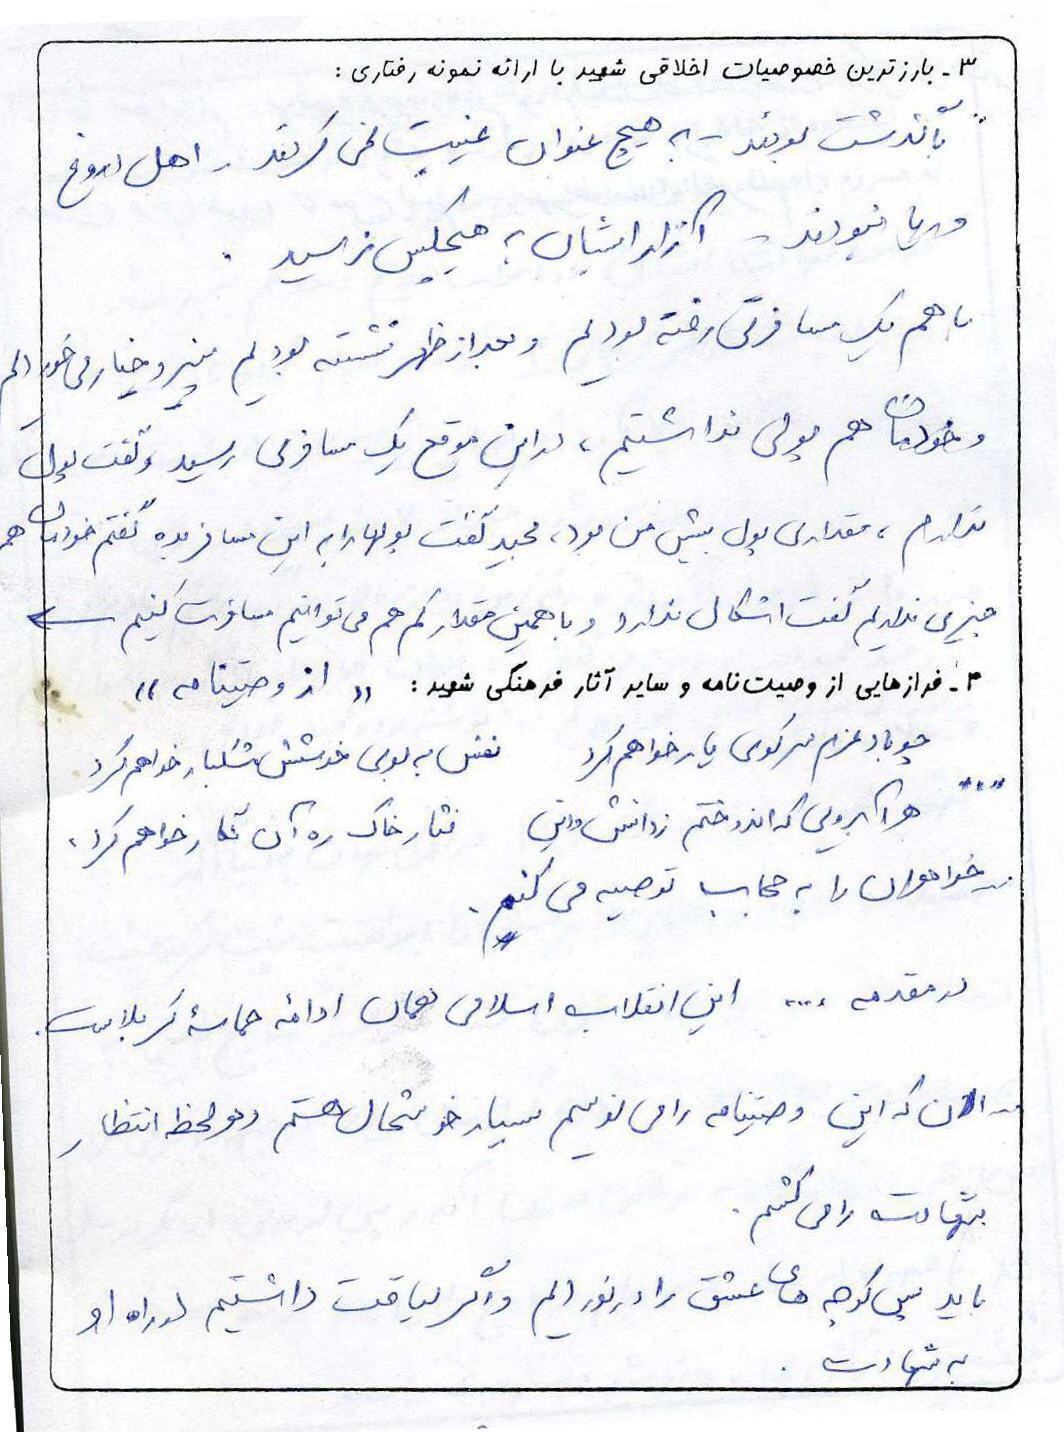 ۳ - بارزترین خصوصیات اخلاقی شهید با ارائه نمونه رفتاری :
باگذشت بودند - به هیچ عنوان غیبت نمی کردند - اهل دروغ
و ریا نبودند - آزار ایشان به هیچکس نرسید .
با هم یک مسافرتی رفته بودیم و بعد از ظهر نشسته بودیم پنیر و خیار می خوردیم
و خودمان هم پولی نداشتیم ، در این موقع یک مسافری رسید و گفت پول
ندارم ، مقداری پول پیش من بود ، مجید گفت پولها را به این مسافر بده گفتم خودمان هم
چیزی نداریم گفت اشکال ندارد و با همین مقدار کم هم می توانیم مسافرت کنیم ←
۴ - فرازهایی از وصیت نامه و سایر آثار فرهنگی شهید : « از وصیتنامه »
چو باد عزم سر کوی یار خواهم کرد نفس به بوی خوشش مشکبار خواهم کرد
هر آبرویی که اندوختم ز دانش و دین نثار خاک ره آن نگار خواهم کرد .
- خواهران را به حجاب توصیه می کنم .
در مقدمه .... این انقلاب اسلامی همان ادامه حماسهٔ کربلاست .
- الان که این وصیتنامه را می نویسم بسیار خوشحال هستم و هر لحظه انتظار
شهادت را می کشم .
باید پس کوچه های عشق را درنوردیم و اگر لیاقت داشتیم در راه او
به شهادت .